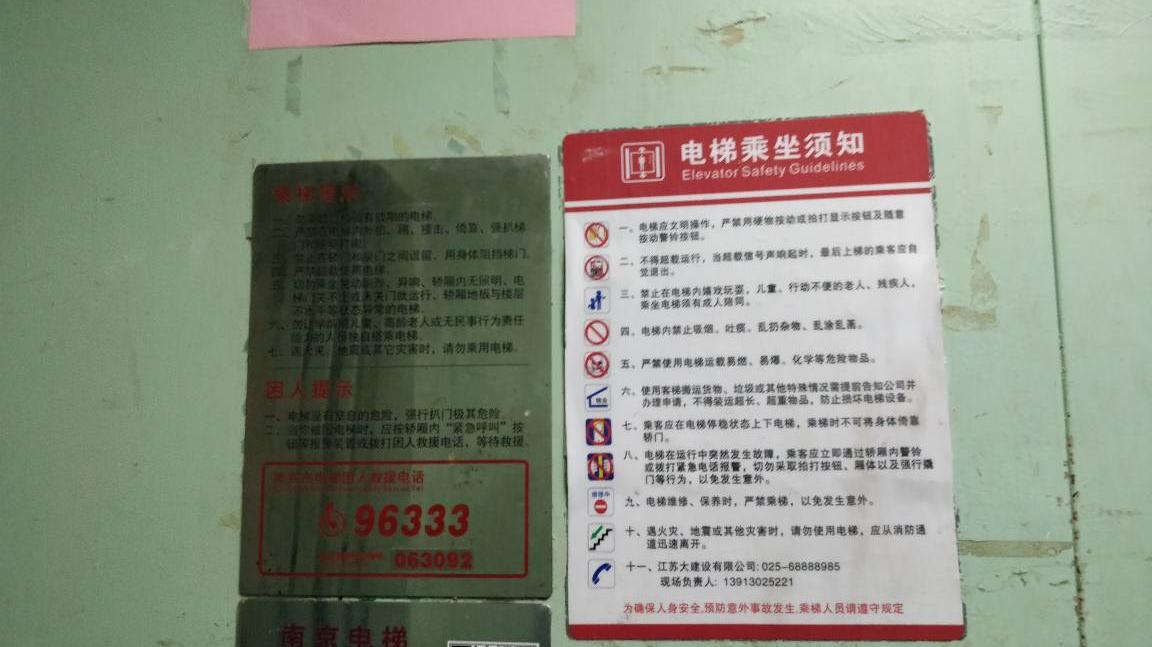 乘梯
有效期的电梯。
严禁在电梯内外拍、踢、撞击、倚靠、强扒梯
用身体阻挡梯门。
四、严禁超载使用电梯。
异响、轿厢内无照明、电
轿厢地板与楼层
不水平等状态异常的电梯。
高龄老人或无民事行为责任
能力的人员独自搭乘电梯。
七、遇火灾、地震或其它灾害时，请勿乘用电梯。
困人提示
一、电梯没有窒息的危险，强行扒门极其危险。
二、当你被困电梯时，应按轿厢内“紧急呼叫”按
钮等报警装置或拨打困人救援电话，等待救援。
南京市电梯困人救援电话
96333
063092
南京电梯
电梯乘坐须知
Elevator Safety Guidelines
一、电梯应文明操作，严禁用硬物按动或拍打显示按钮及随意
按动警铃按钮。
二、不得超载运行，当超载信号声响起时，最后上梯的乘客应自
觉退出。
三、禁止在电梯内嬉戏玩耍，儿童、行动不便的老人、残疾人，
乘坐电梯须有成人陪同。
四、电梯内禁止吸烟、吐痰、乱扔杂物、乱涂乱画。
五、严禁使用电梯运载易燃、易爆、化学等危险物品。
六、使用客梯搬运货物、垃圾或其他特殊情况需提前告知公司并
办理申请，不得装运超长、超重物品，防止损坏电梯设备。
七、乘客应在电梯停稳状态上下电梯，乘梯时不可将身体倚靠
轿门。
八、电梯在运行中突然发生故障，乘客应立即通过轿厢内警铃
或拨打紧急电话报警，切勿采取拍打按钮、厢体以及强行撬
门等行为，以免发生意外。
九、电梯维修、保养时，严禁乘梯，以免发生意外。
十、遇火灾、地震或其他灾害时，请勿使用电梯，应从消防通
道迅速离开。
十一、江苏大建设有限公司: 025-68888985
现场负责人: 13913025221
为确保人身安全,预防意外事故发生,乘梯人员请遵守规定